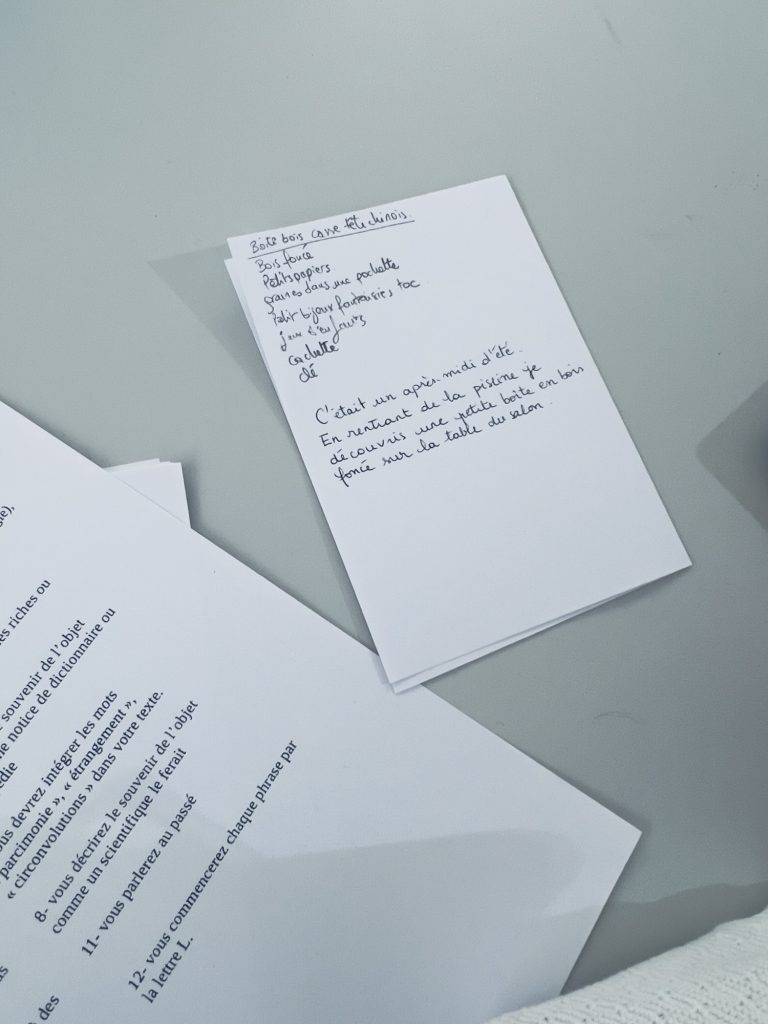 Boite bois casse tête chinois.
Bois foncé
Petits papiers
graines dans une pochette
Petit bijoux fantaisies toc
jeux
cachette
clé
C'était un après-midi d'été.
En rentrant de la piscine je
découvris une petite boîte en bois
foncé sur la table du salon.
gie),
es riches ou
souvenir de l'objet
ne notice de dictionnaire ou
édie
ous devrez intégrer les mots
parcimonie », « étrangement »,
« circonvolutions » dans votre texte.
8- vous décrirez le souvenir de l'objet
comme un scientifique le ferait
11- vous parlerez au passé
12- vous commencerez chaque phrase par
la lettre L.
des